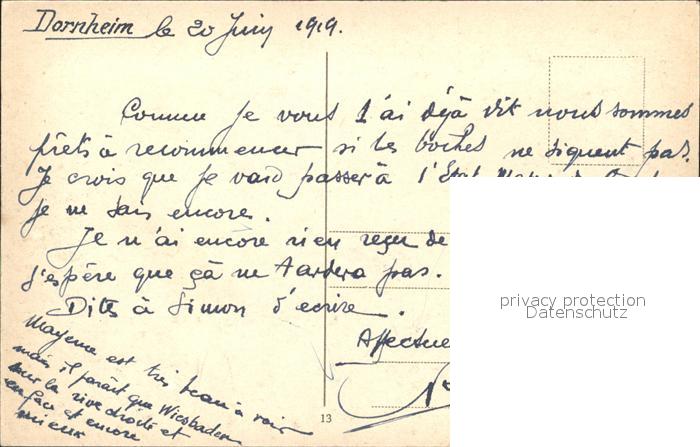 Dornheim le 20 Juin 1919.
Comme je vous l'ai déjà dit nous sommes
prêts à recommencer si les boches ne signent pas.
Je crois que je vais passer à l'Etat
je ne sais encore.
Je n'ai encore rien reçu de
j'espère que çà ne tardera pas.
Dites à Simon d'ecrire.
Affectue
Mayence est très beau à voir
mais il parait que Wiesbaden
sur la rive droite et
en face et encore
mieux
13
privacy protection
Datenschutz